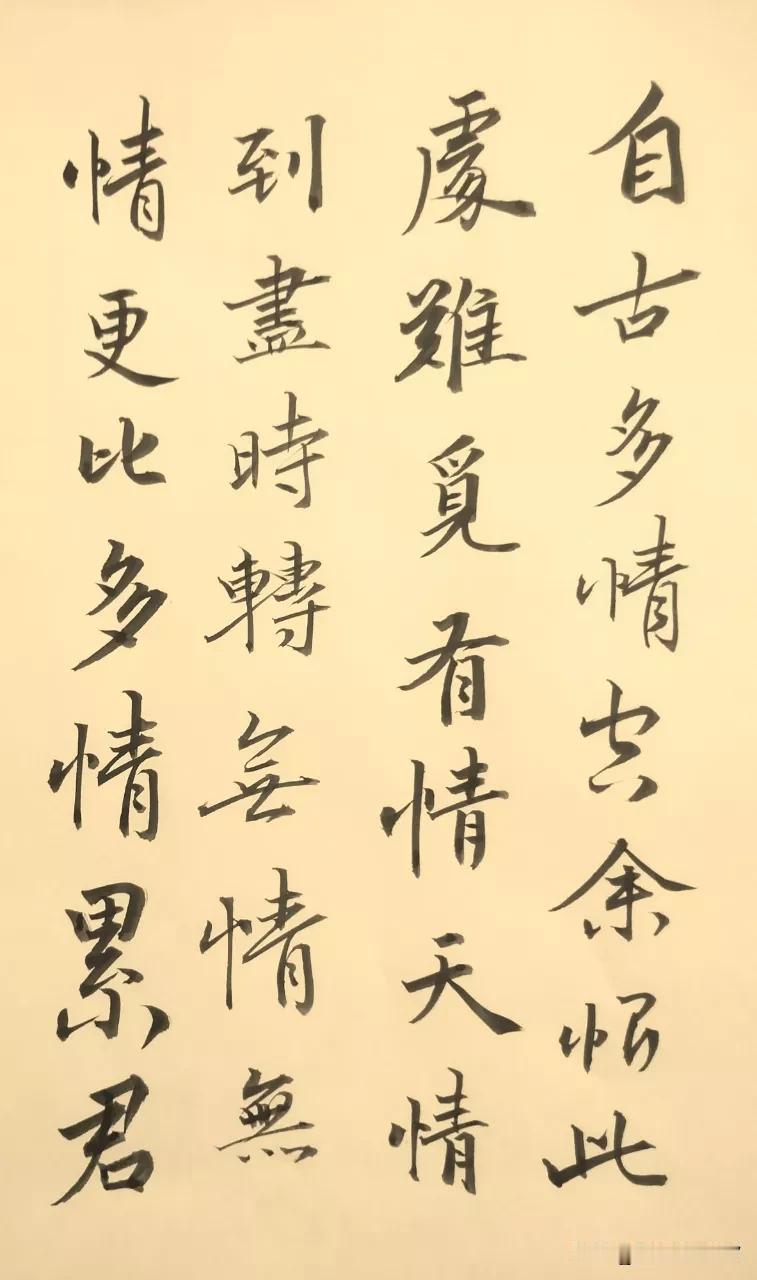 自古多情空余恨此
處難覓有情天情
到盡時轉無情無
情更比多情累君